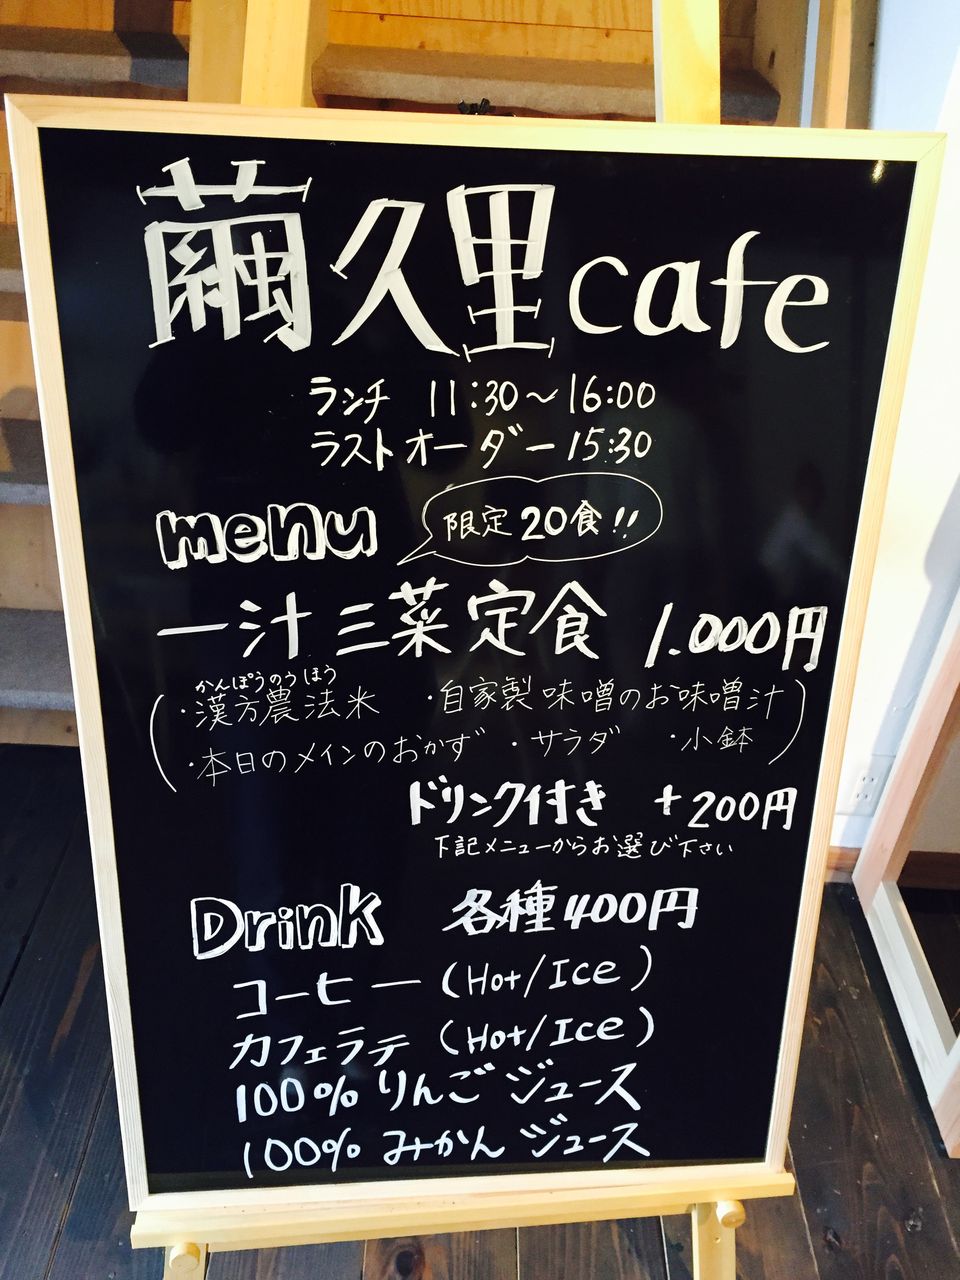 繭久里cafe
ランチ 11:30～16:00
ラストオーダー 15:30
menu 限定20食!!
一汁三菜定食 1.000円
かんぽうのうほう
・漢方農法米 ・自家製味噌のお味噌汁
・本日のメインのおかず ・サラダ ・小鉢
ドリンク付き +200円
下記メニューからお選び下さい
Drink 各種400円
コーヒー (Hot/Ice)
カフェラテ (Hot/Ice)
100% りんごジュース
100% みかんジュース